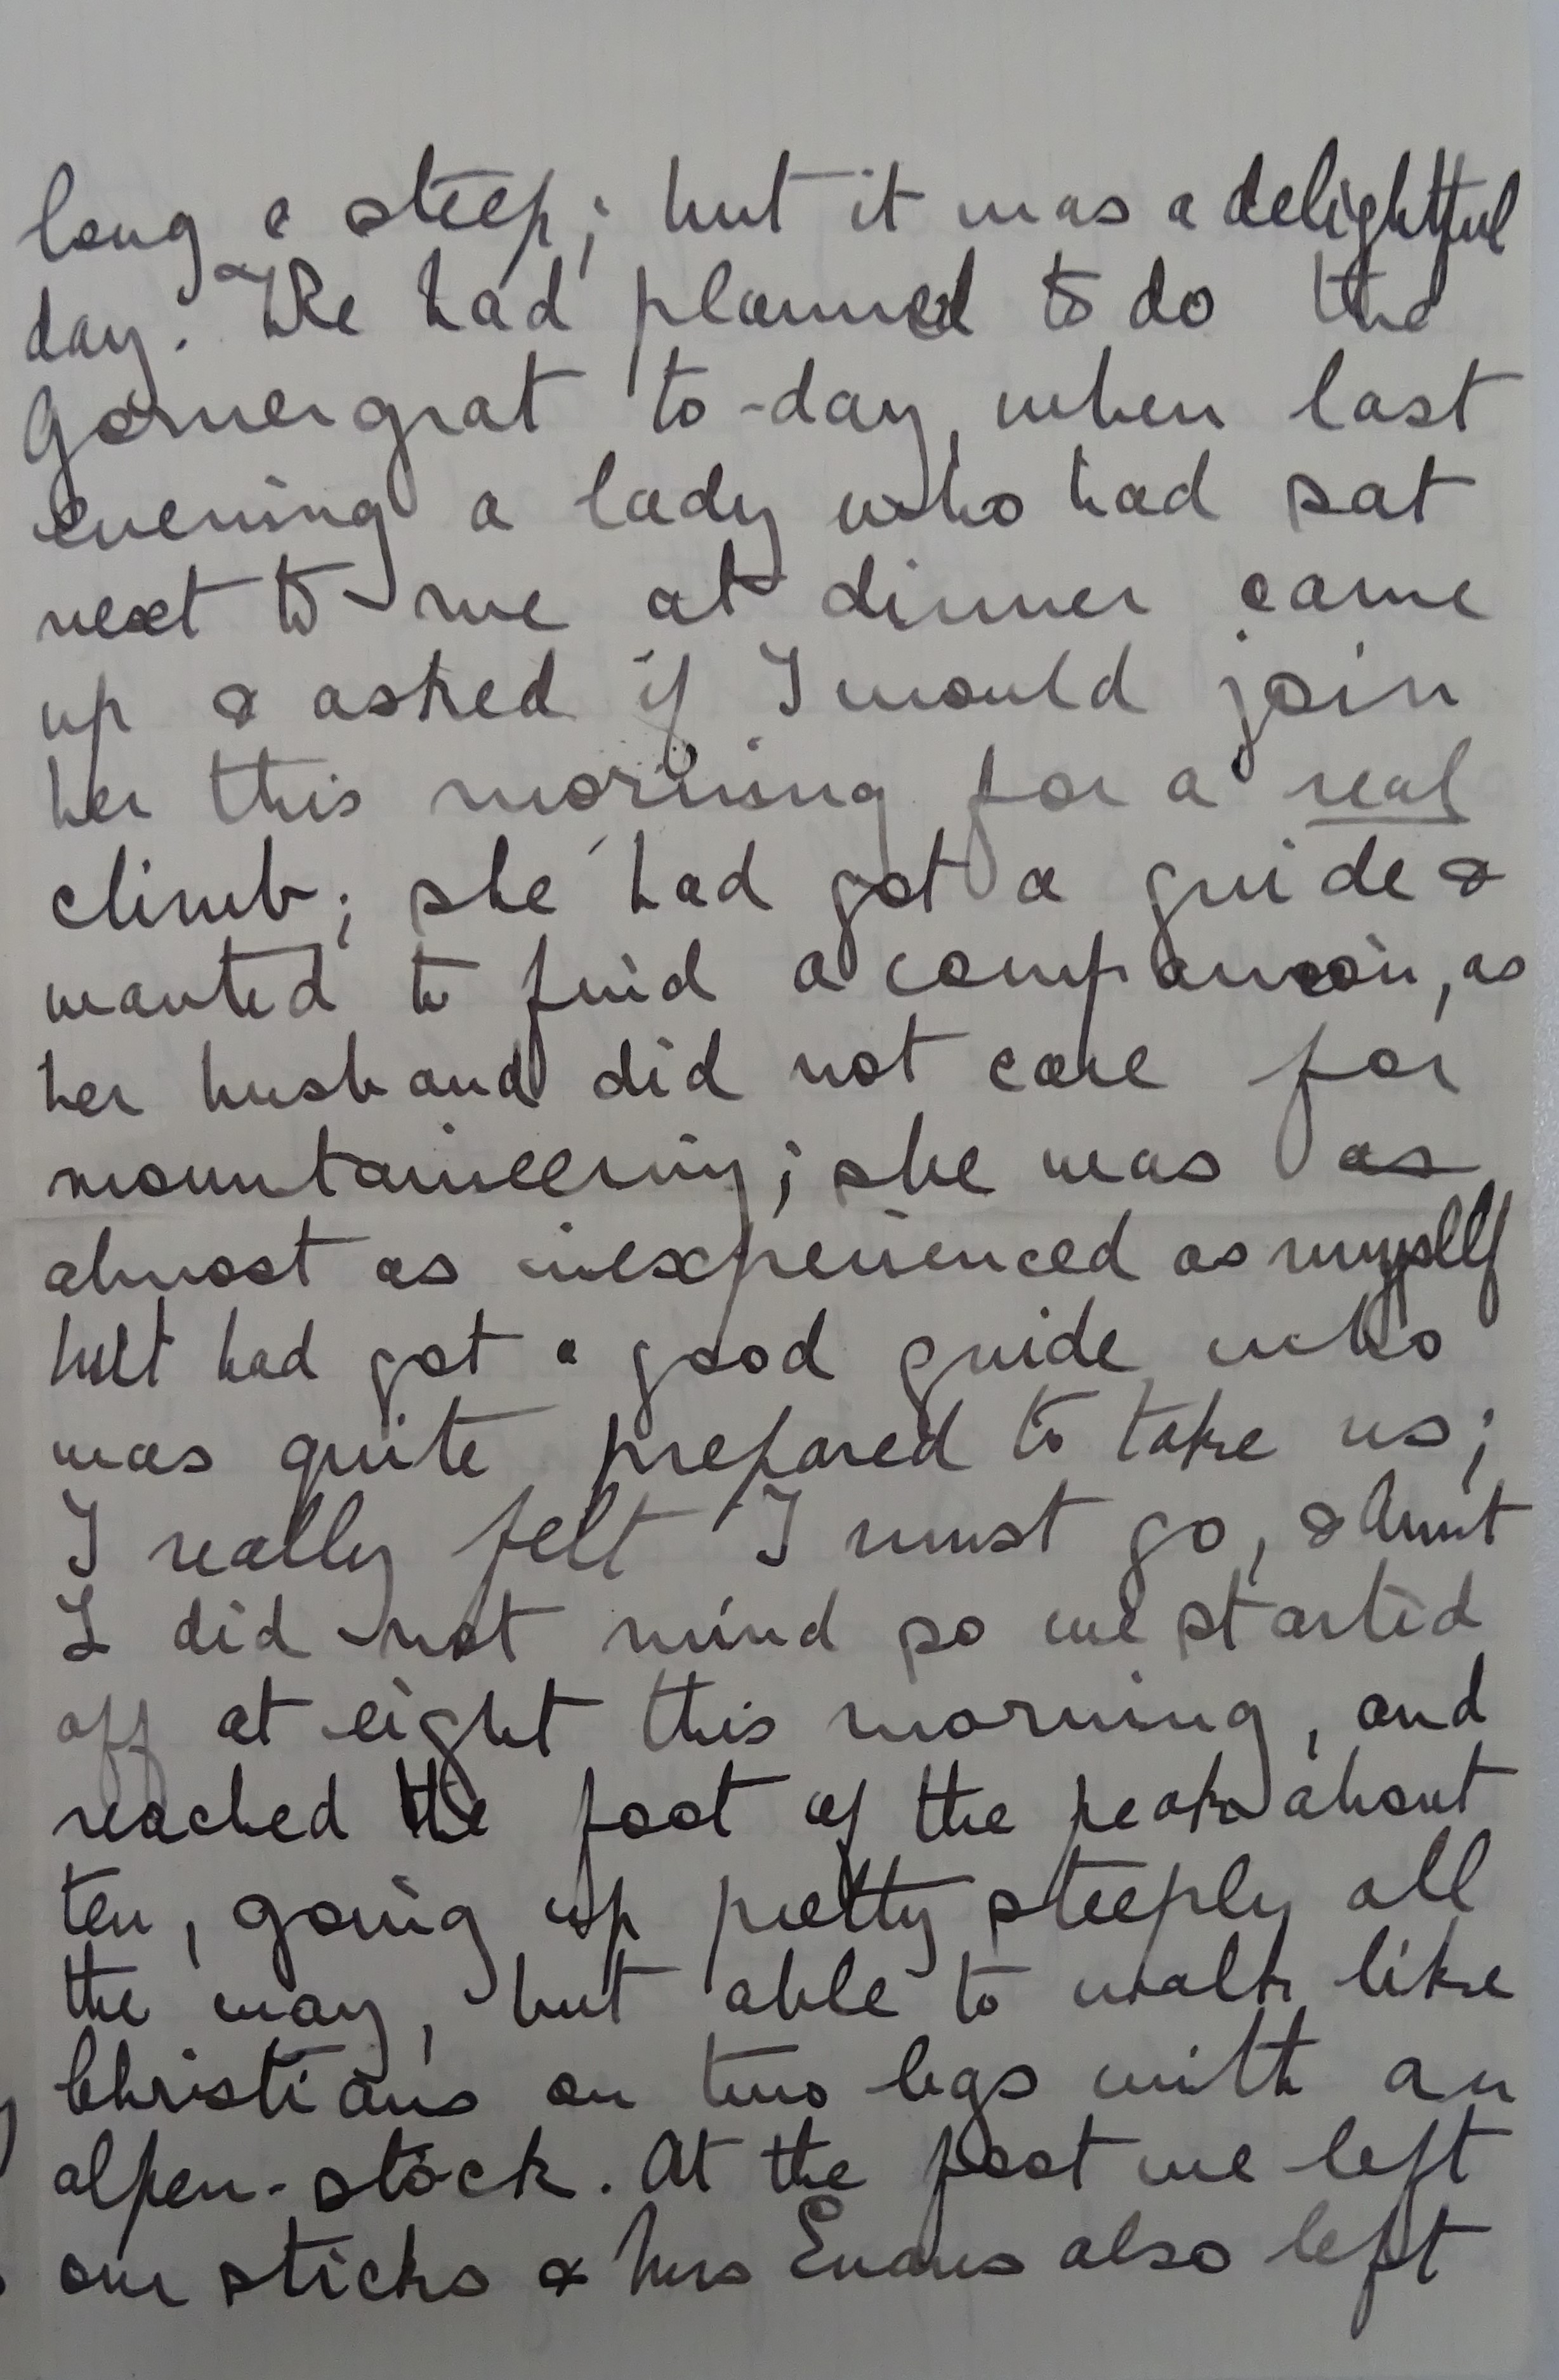 long & steep; but it was a delightful
day. We had planned to do the
Gornergrat to-day, when last
evening a lady who had sat
next to me at dinner came
up & asked if I would join
her this morning for a real
climb; she had got a guide &
wanted to find a companion, as
her husband did not care for
mountaineering; she was as
almost as inexperienced as myself
but had got a good guide who
was quite prepared to take us;
I really felt I must go, & Aunt
L did not mind so we started
off at eight this morning, and
reached the foot of the peak about
ten, going up pretty steeply all
the way, but able to walk like
Christians on two legs with an
alpen-stock. At the foot we left
our sticks & Mrs Evans also left